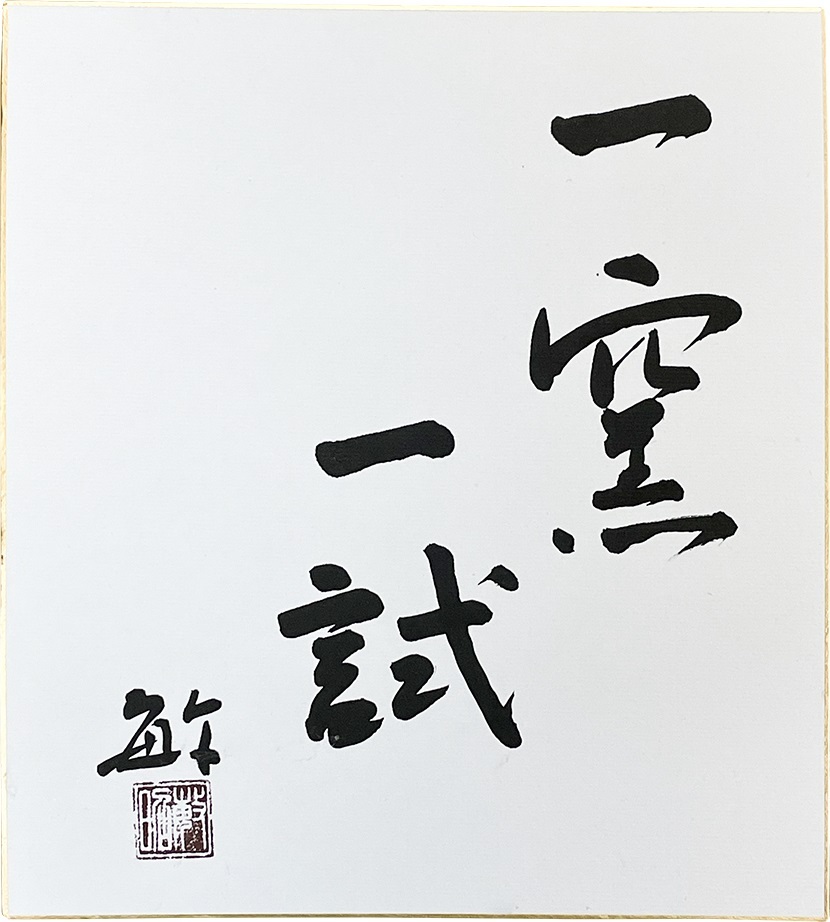 一窯
一試
敏